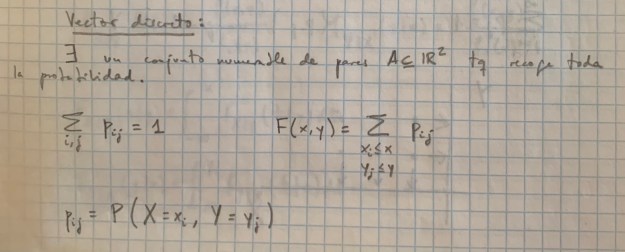 Vector discreto:
∃ un conjunto numerable de pares A ⊆ ℝ² tq recoge toda
la probabilidad.
∑_{i,j} p_{ij} = 1    F(x,y) = ∑_{x_i≤x, y_j≤y} p_{ij}
p_{ij} = P(X=x_i, Y=y_j)